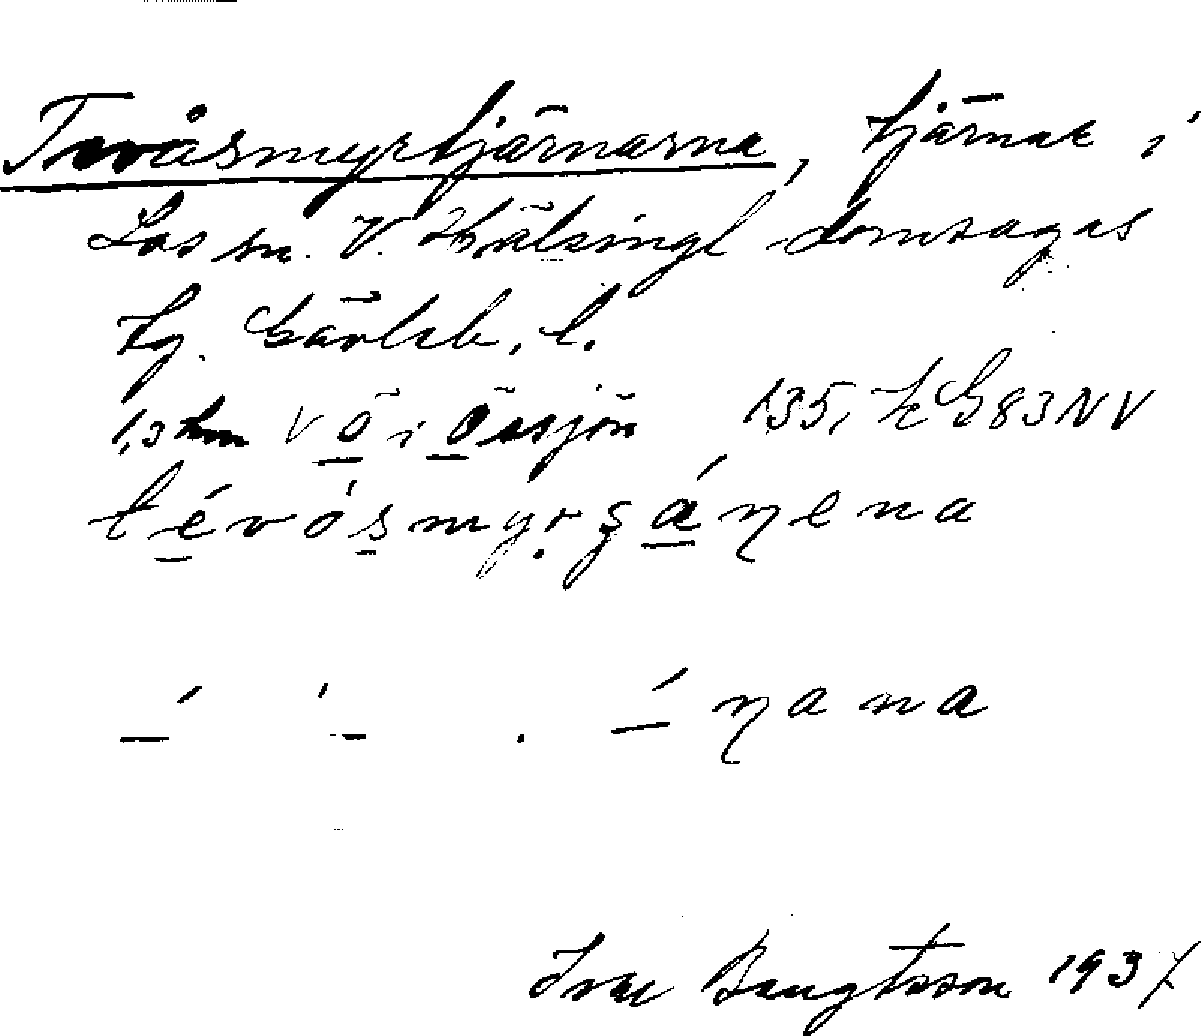 Tvåsmyrtjärnarna, tjärnar i
Los sn. V. Hälsingl domsagas
tg. Gävleb. l.
1,3 km V ö i Össjön 135, k G83NV
tévósmyrgánena
nana
Ivar Bengtsson 1937